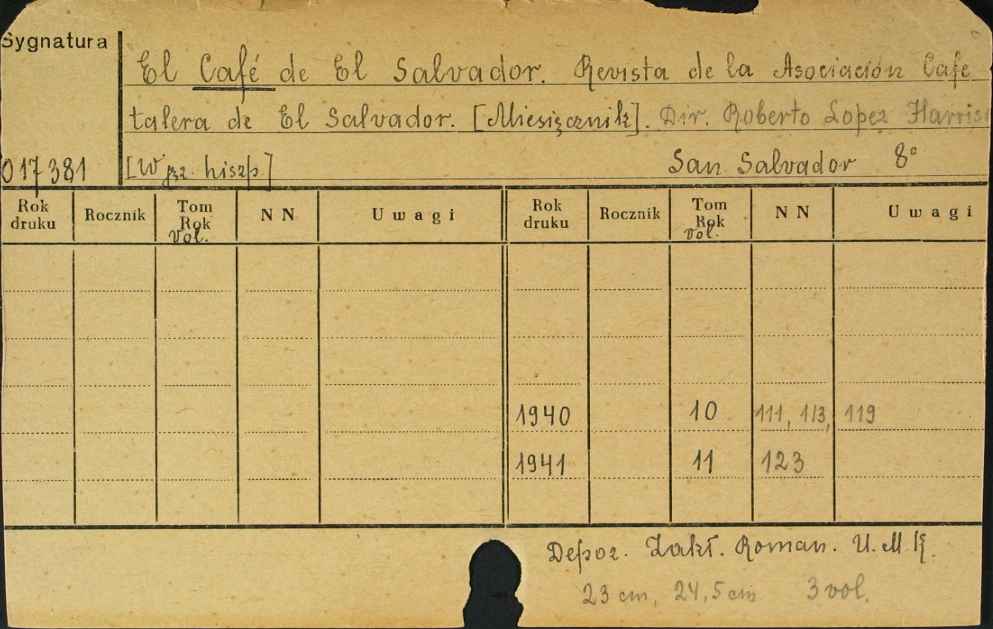 Sygnatura
El Café de El Salvador. Revista de la Asociación Cafe
talera de El Salvador. [Miesięcznik]. Dir. Roberto Lopez Harris
017381 [W jęz. hiszp.] San Salvador 8°
Rok druku Rocznik Tom Rok Vol. NN Uwagi Rok druku Rocznik Tom Rok Vol. NN Uwagi
1940 10 111, 113, 119
1941 11 123
Depoz. Zakł. Roman. U.M.K.
23 cm, 24,5 cm 3 vol.